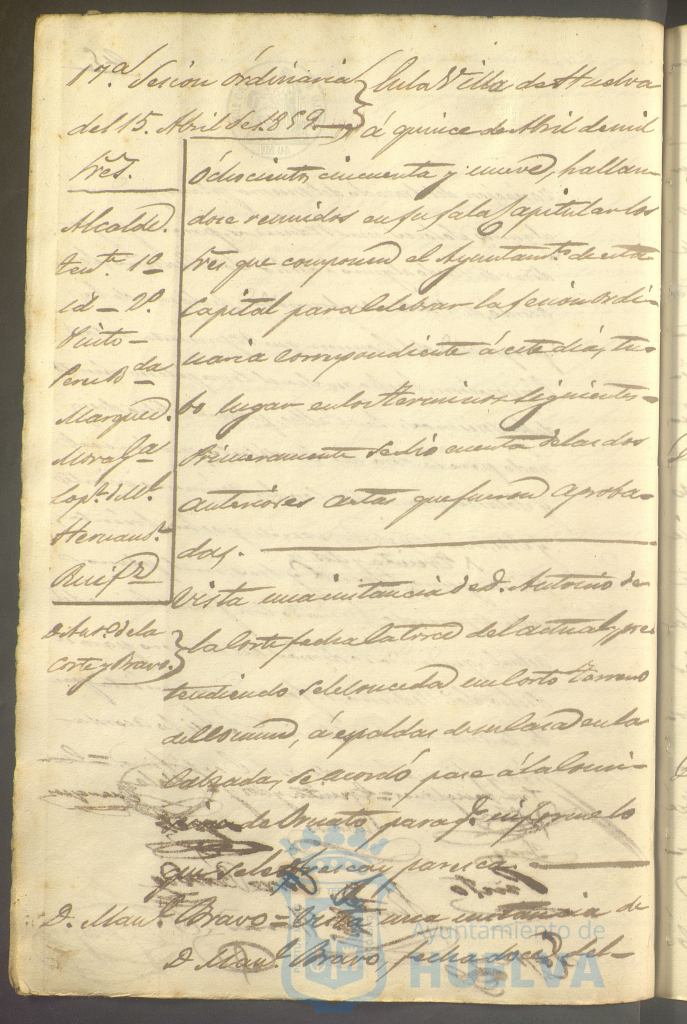 17.ª Sesion órdinaria
del 15. Abril de 1859.
En la Villa de Huelva
á quince de Abril de mil
Sres.
Alcalde.
Tent.e 1º
id - 2º
Pinto -
Marquez.
Mora
Lop.z
Hernand.z
Ruifz
óchocientos cincuenta y nueve, hallan-
dose reunidos en su Sala Capitular los
Sres que componen el Ayuntam.to de esta
Capital para celebrar la sesion ordi-
naria correspondiente á este dia, tu-
bo lugar en los terminos siguientes=
Primeramente se dió cuenta de las dos
anteriores actas que fueron aproba-
das.
D. Ant.o de la
Corte y Bravo.
Vista una instancia de D. Antonio de
la Corte fecha catorce del actual, pre
tendiendo se le conceda un corto terreno
del comun, á espaldas de su casa en la
Calzada, se acordó pase á la Comi-
sion de Ornato, para q.e informe lo
que se le ofresca y paresca.
D. Man.l Bravo = Vista una instancia de
D. Man.l Bravo, fecha doce del-
Ayuntamiento de
HUELVA